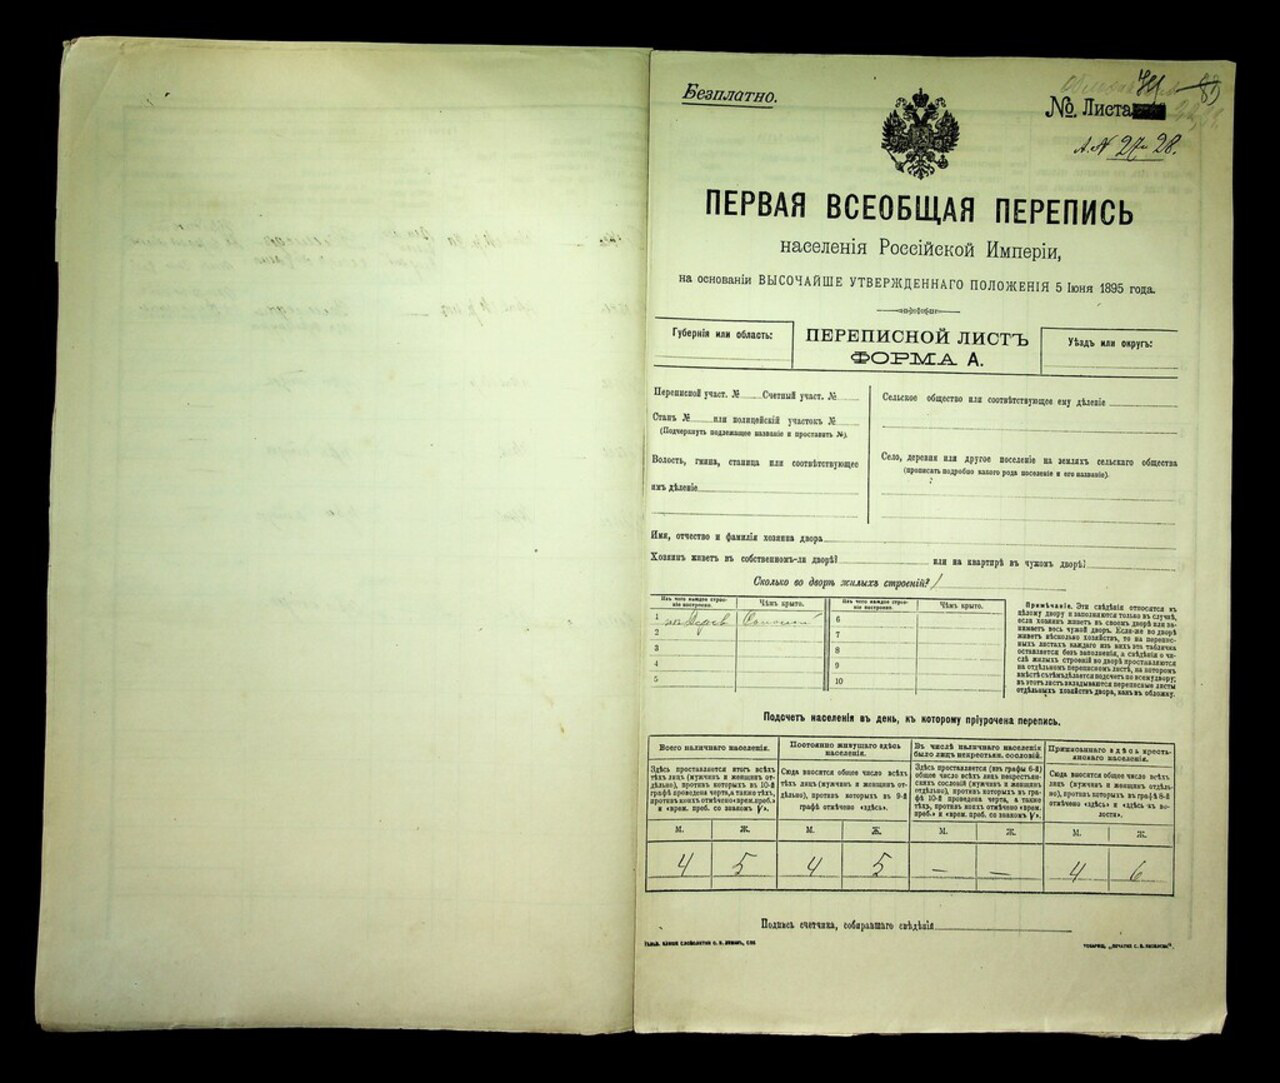 Безплатно.
№ Листа
А. N 27 и 28.
ПЕРВАЯ ВСЕОБЩАЯ ПЕРЕПИСЬ
населенія Россійской Имперіи,
на основаніи ВЫСОЧАЙШЕ УТВЕРЖДЕННАГО ПОЛОЖЕНІЯ 5 Іюня 1895 года.
Губернія или область:
ПЕРЕПИСНОЙ ЛИСТЪ
ФОРМА А.
Уѣздъ или округъ:
Переписной участ. № Счетный участ. №
Станъ № или полицейскій участокъ №
(Подчеркнуть подлежащее названіе и проставить №).
Волость, гмина, станица или соотвѣтствующее
имъ дѣленіе
Сельское общество или соотвѣтствующее ему дѣленіе
Село, деревня или другое поселеніе на земляхъ сельскаго общества
(прописать подробно какого рода поселеніе и его названіе).
Имя, отчество и фамилія хозяина двора
Хозяинъ живетъ въ собственномъ-ли дворѣ? или на квартирѣ въ чужомъ дворѣ?
Сколько во дворѣ жилыхъ строеній? 1
Изъ чего каждое строе-
ніе построено.
Чѣмъ крыто.
Изъ чего каждое строе-
ніе построено.
Чѣмъ крыто.
1 изъ Дерев Соломой 6
2 7
3 8
4 9
5 10
Примѣчаніе. Эти свѣдѣнія относятся къ
цѣлому двору и заполняются только въ случаѣ,
если хозяинъ живетъ въ своемъ дворѣ или за-
нимаетъ весь чужой дворъ. Если-же во дворѣ
живетъ нѣсколько хозяйствъ, то на перепис-
ныхъ листахъ каждаго изъ нихъ эта табличка
оставляется безъ заполненія, а свѣдѣнія о чи-
слѣ жилыхъ строеній во дворѣ проставляются
на отдѣльномъ переписномъ листѣ, на которомъ
вмѣстѣ съ тѣмъ дѣлается подсчетъ по всему двору;
въ этотъ листъ вкладываются переписные листы
отдѣльныхъ хозяйствъ двора, какъ въ обложку.
Подсчетъ населенія въ день, къ которому пріурочена перепись.
Всего наличнаго населенія.
Здѣсь проставляется итогъ всѣхъ
тѣхъ лицъ (мужчинъ и женщинъ от-
дѣльно), противъ которыхъ въ 10-й
графѣ проведена черта, а также тѣхъ,
противъ коихъ отмѣчено «врем. преб.»
и «врем. преб. со знакомъ V».
Постоянно живущаго здѣсь
населенія.
Сюда вносится общее число всѣхъ
тѣхъ лицъ (мужчинъ и женщинъ от-
дѣльно), противъ которыхъ въ 9-й
графѣ отмѣчено «здѣсь».
Въ числѣ наличнаго населенія
было лицъ некрестьян. сословій.
Здѣсь проставляется (изъ графы 6-й)
общее число всѣхъ лицъ некрестьян-
скихъ сословій (мужчинъ и женщинъ
отдѣльно), противъ которыхъ въ гра-
фѣ 10-й проведена черта, а также
тѣхъ, противъ коихъ отмѣчено «врем.
преб.» и «врем. преб. со знакомъ V».
Приписаннаго здѣсь кресть-
янскаго населенія.
Сюда вносится общее число всѣхъ
лицъ (мужчинъ и женщинъ отдѣль-
но), противъ которыхъ въ графѣ 8-й
отмѣчено «здѣсь» и «здѣсь въ во-
лости».
М. Ж. М. Ж. М. Ж. М. Ж.
4 5 4 5 — — 4 6
Подпись счетчика, собиравшаго свѣдѣнія